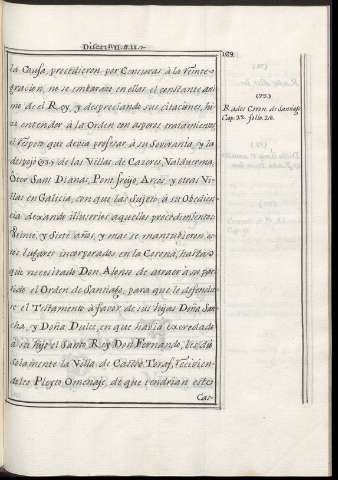 Discurso VI. §. II.
189
la Causa, precedieron por Censuras à la reinte-
gracion, no se embarazò en ellas el constante ani-
mo de el Rey, y despreciando sus citaciones, hi-
zo entender à la Orden con asperos tratamientos
el respeto que devia profesar à su Soverania, y la
despojò de las Villas de Cazeres, Valduerna,
Sant Pont Arcos, y otras Vi-
llas en Galicia, con que las sujetò à su Obedien-
cia dexando illusorios aquellos procedimientos
Veinte, y Siete años, y mas se mantubieron es-
tos lugares incorporados en la Corona, hasta
que necesitado Don Alonso de atraer à su par-
tido el Orden de Santiago, para que le defendie-
se el Testamento à favor de sus hijas Doña San-
cha, y Doña Dulce, en que havia exeredado
à su hijo el Santo Rey Don Fernando, les diò
solamente la Villa de Castro Toraf, recivien-
doles Pleyto Omenaje, de que tendrian este
Cas-
Rades Cron. de Santiago
Cap. 22. folio 28.